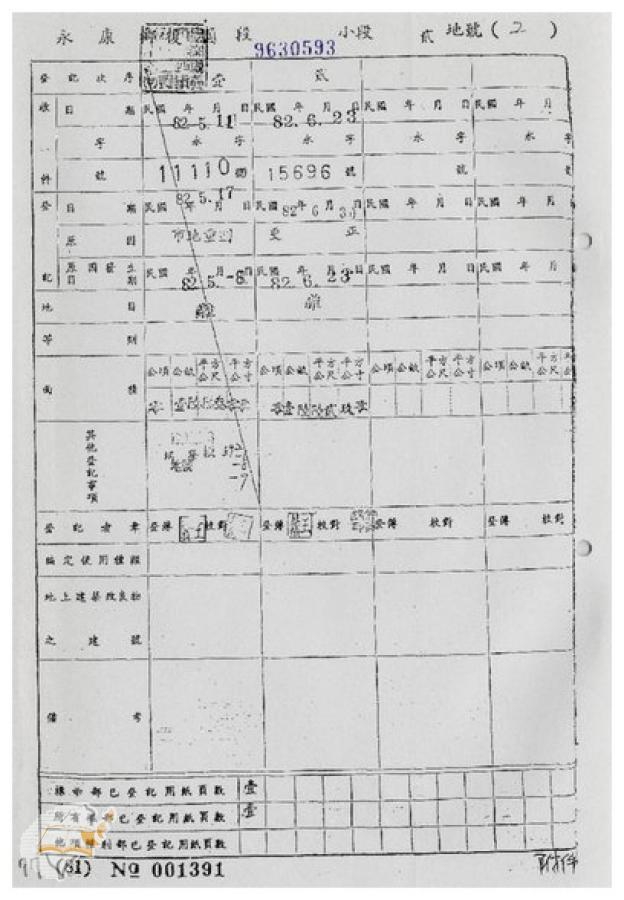 永康鄉復國段 小段 貳 地號(2)
9630593
登記次序 壹 貳
收 日期 民國 年 月 日 民國 年 月 日 民國 年 月 日 民國 年 月
82.5.11 82.6.23
字 永字 永字 永字 永字
件 號 11110號 15696號 號
82.5.17
登 日期 民國 年 月 日 民國82年6月30日 民國 年 月 日 民國 年 月
原因 更正
記 原因發生日期 民國 年 月 日 民國 年 月 日 民國 年 月 日 民國 年 月
82.5.-6 82.6.23
地目 雜 雜
等則
面積 公頃 公畝 平方公尺 平方公寸 公頃 公畝 平方公尺 平方公寸 公頃 公畝 平方公尺 平方公寸 公頃 公畝 平方公尺
零壹陸陸貳玖
其他登記事項
392
-6
-7
登記者章 登簿 校對 登簿 校對 登簿 校對 登簿 校對
編定使用種類
地上建築改良物
之建號
備考
標示部已登記用紙頁數 壹
所有權部已登記用紙頁數 壹
他項權利部已登記用紙頁數
97 (81) No 001391
附件